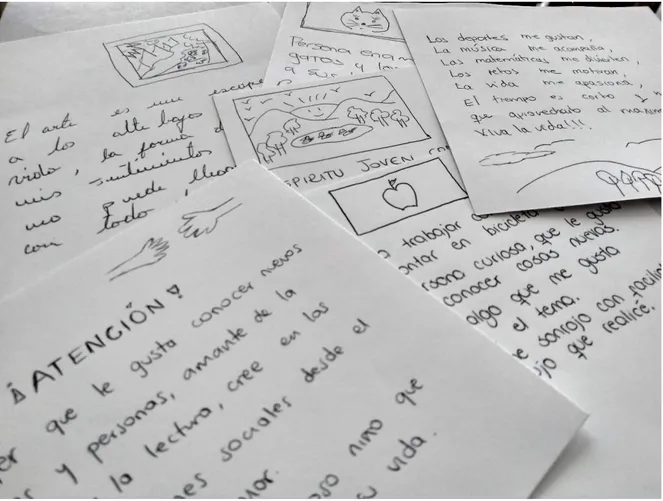 El arte es un escape
a los altibajos
vida, la forma d
mis sentimientos
uno puede llenar
con todo
Persona enam
gatos y l
a su
ESPIRITU JOVEN con
Los deportes me gustan,
La música me acompaña,
Las matemáticas me divierten,
Los retos me motivan,
La vida me apasiona,
El tiempo es corto y
que aprovecharlo al máximo
Viva la vida!!!
a trabajar
ontar en bicicleta
rsona curiosa, que le gusta
conocer cosas nuevas.
algo que me gusta
el tema.
e sonrojo con facili
jo que realicé.
¡ATENCIÓN!
er que le gusta conocer nuevos
s y personas, amante de la
la lectura, cree en las
nes sociales desde el
mor.
oso niño que
u vida.